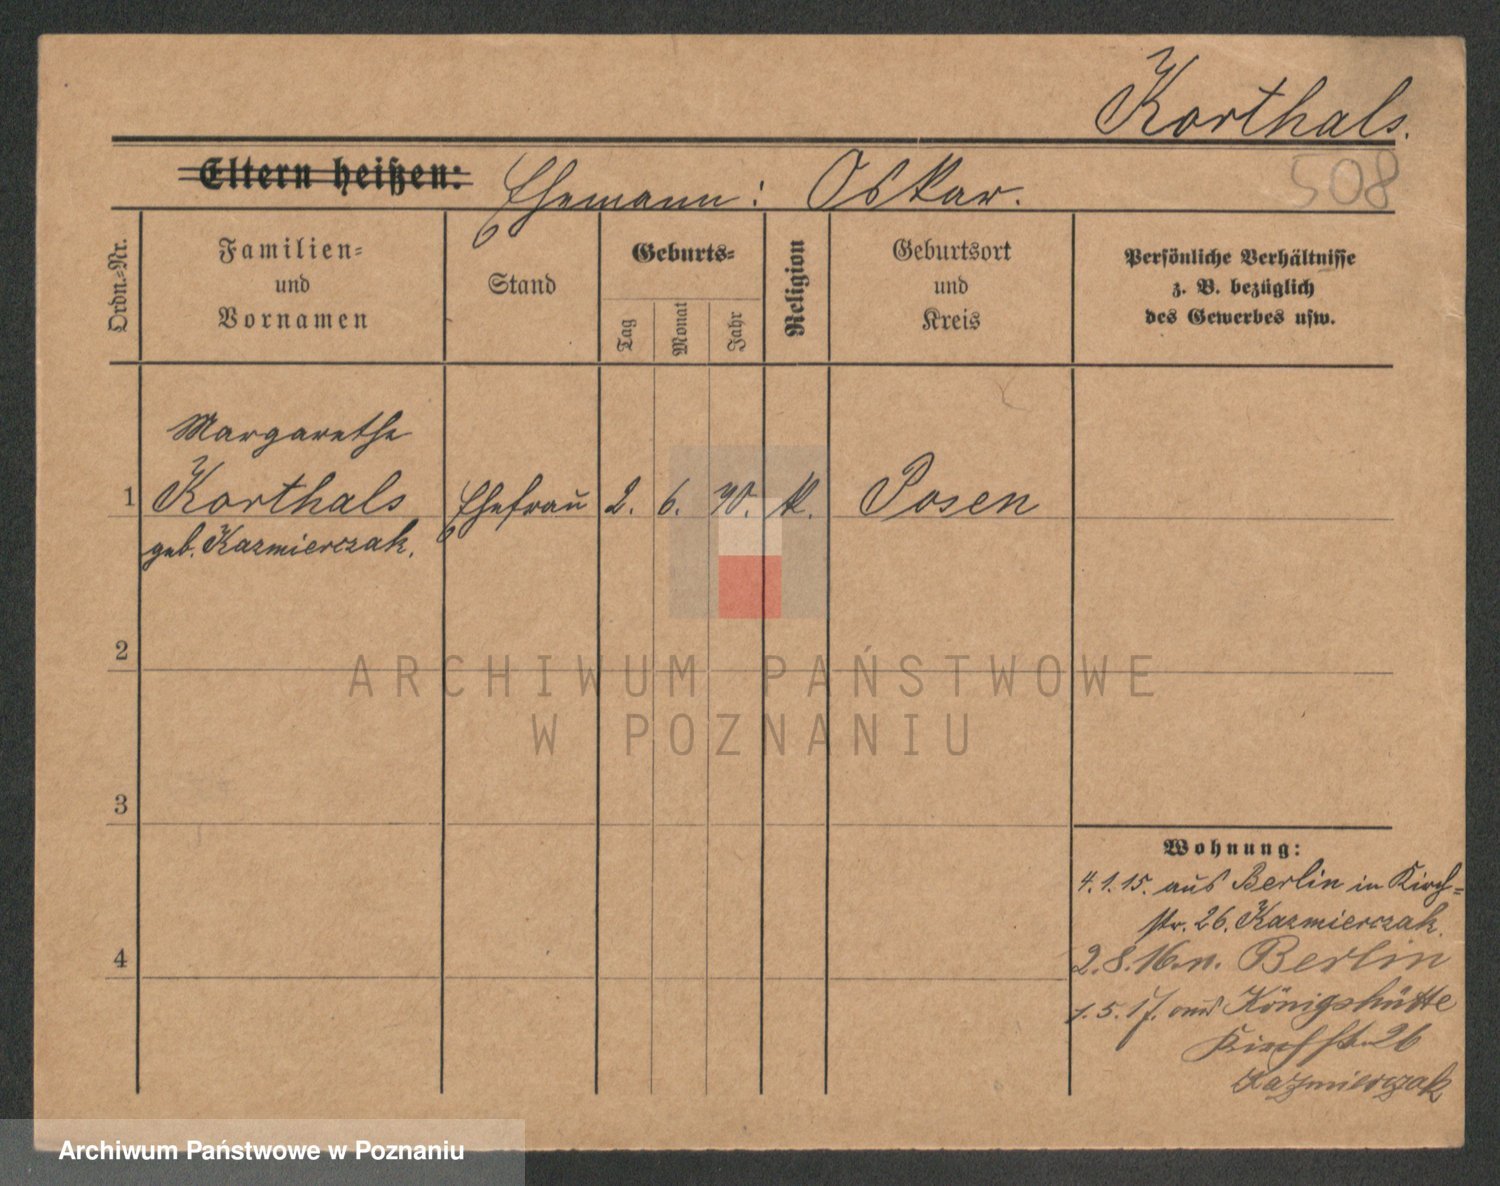 Korthals.
508
Eltern heißen: Ehemann: Oskar.
Ordn.-Nr.
Familien- und Vornamen
Stand
Geburts-
Tag
Monat
Jahr
Religion
Geburtsort und Kreis
Persönliche Verhältnisse
z. B. bezüglich
des Gewerbes usw.
Margarethe
1 Korthals Ehefrau 2. 6. 90. k. Posen
geb. Kazmierczak.
2
3
4
Wohnung:
4.1.15. aus Berlin in Kirch-
str. 26. Kazmierczak.
2.8.16. n. Berlin
1.5.17. aus Königshütte
Kirchstr. 26
Kazmierczak
ARCHIWUM PAŃSTWOWE
W POZNANIU
Archiwum Państwowe w Poznaniu